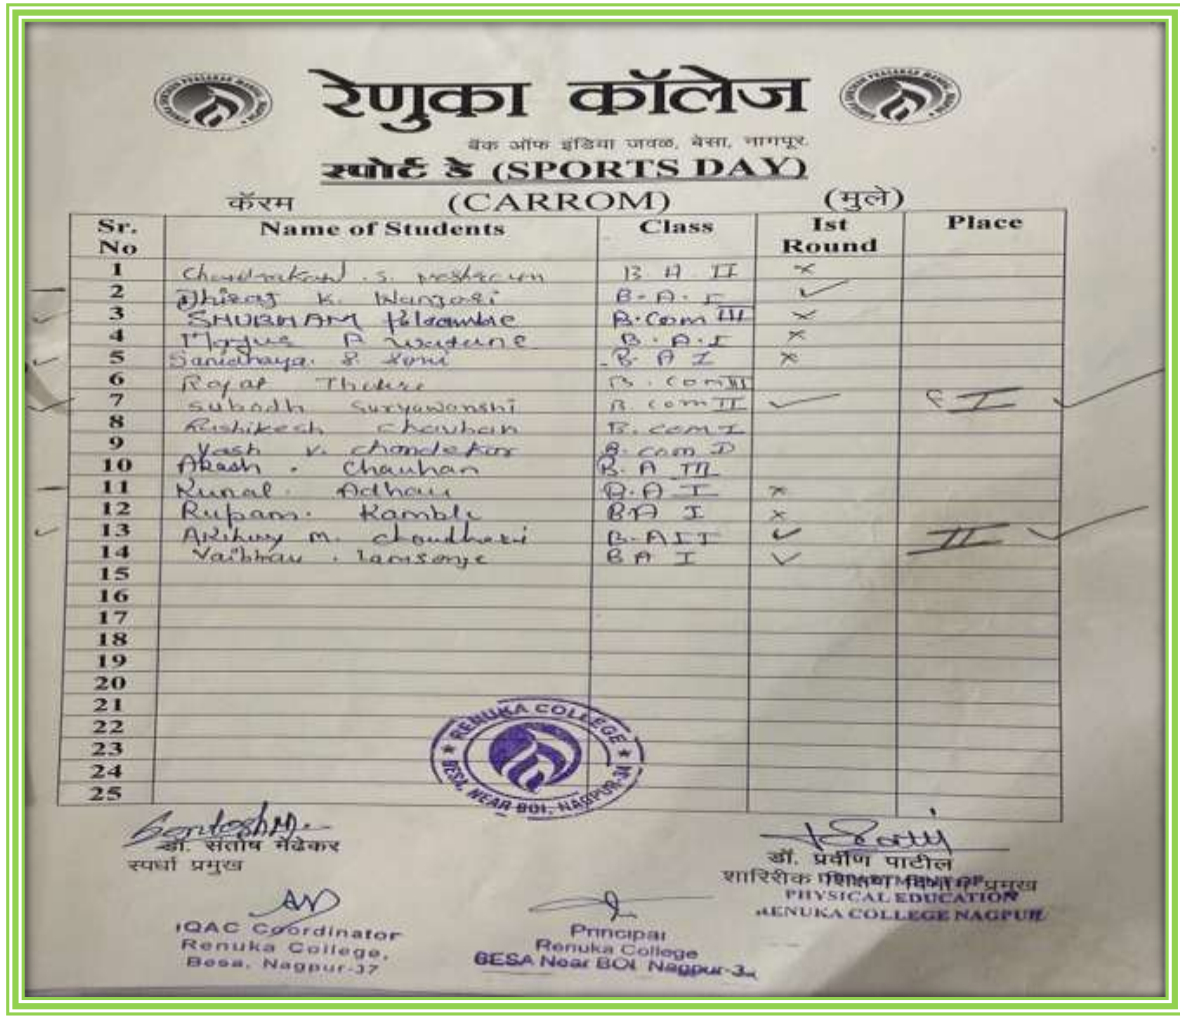 रेणुका कॉलेज
बँक ऑफ इंडिया जवळ, बेसा, नागपूर.
स्पोर्ट डे (SPORTS DAY)
कॅरम (CARROM) (मुले)
Sr. No Name of Students Class Ist Round Place
1 S. meshram B A II ×
2 Dhiraj K. Wanjari B.A. I ✓
3 SHUBHAM B.Com III ×
4 P B.A.I ×
5 S. Soni B A I ×
6 Rajat Thakre B.com III
7 Subodh Suryawanshi B.com II ✓ I ✓
8 Rushikesh chauhan B.com I
9 Yash V. chandekar B.com
10 Akash . Chauhan B.A III
11 Kunal. Adhau B.A I ×
12 Rupam. Kamble BA I ×
13 Akshay M. choudhari B.A II ✓ II ✓
14 Vaibhav . lamsonge BA I ✓
15
16
17
18
19
20
21
22
23
24
25
RENUKA COLLEGE
BESA, NEAR BOI, NAGPUR-34
SantoshM.
डॉ. संतोष मेंढेकर
स्पर्धा प्रमुख
डॉ. प्रवीण पाटील
शारिरीक शिक्षण विभाग प्रमुख
DEPARTMENT OF
PHYSICAL EDUCATION
RENUKA COLLEGE NAGPUR
IQAC Coordinator
Renuka College,
Besa, Nagpur-37
Principal
Renuka College
BESA Near BOI, Nagpur-34